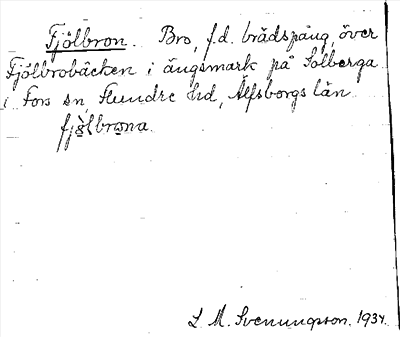 Fjölbron. Bro, f.d. brädspång, över
Fjölbrobäcken i ängsmark på Solberga
i Fors sn, Flundre hd, Älfsborgs län
fjò̤lbrωna.
L. M. Svenungsson. 1934.